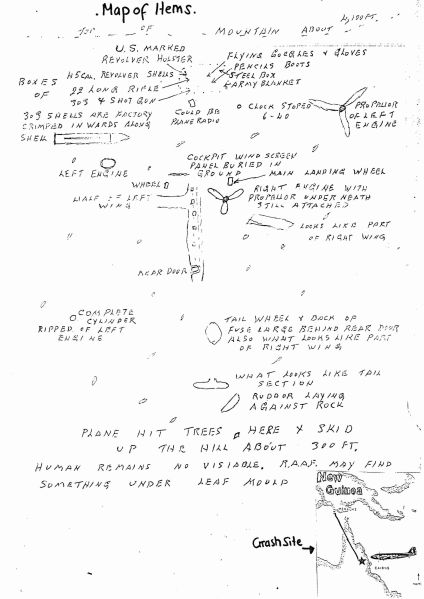 Map of Items.
TOP OF MOUNTAIN ABOUT 4,100 FT.
U.S. MARKED
REVOLVER HOLSTER
FLYING GOGGLES & GLOVES
PENCILS BOOTS
STEEL BOX
ARMY BLANKET
BOXES
OF
45CAL. REVOLVER SHELLS
22 LONG RIFLE
303 & SHOT GUN
303 SHELLS ARE FACTORY
CRIMPED IN WARDS ALONG
SHELL
COULD BE
PLANE RADIO
CLOCK STOPED
6-40
PROPALLOR
OF LEFT
ENGINE
LEFT ENGINE
COCKPIT WIND SCREEN
PANEL BURIED IN
GROUND
MAIN LANDING WHEEL
WHEEL
HALF OF LEFT
WING
RIGHT ENGINE WITH
PROPALLOR UNDER NEATH
STILL ATTACHED
LOOKS LIKE PART
OF RIGHT WING
REAR DOOR
COMPLETE
CYLINDER
RIPPED OF LEFT
ENGINE
TAIL WHEEL & BACK OF
FUSE LARGE BEHIND REAR DOOR
ALSO WHAT LOOKS LIKE PART
OF RIGHT WING
WHAT LOOKS LIKE TAIL
SECTION
RUDDOR LAYING
AGAINST ROCK
PLANE HIT TREES HERE & SKID
UP THE HILL ABOUT 300 FT.
HUMAN REMAINS NO VISIABLE. R.A.A.F. MAY FIND
SOMETHING UNDER LEAF MOULD
New
Guinea
Crash Site
CAIRNS